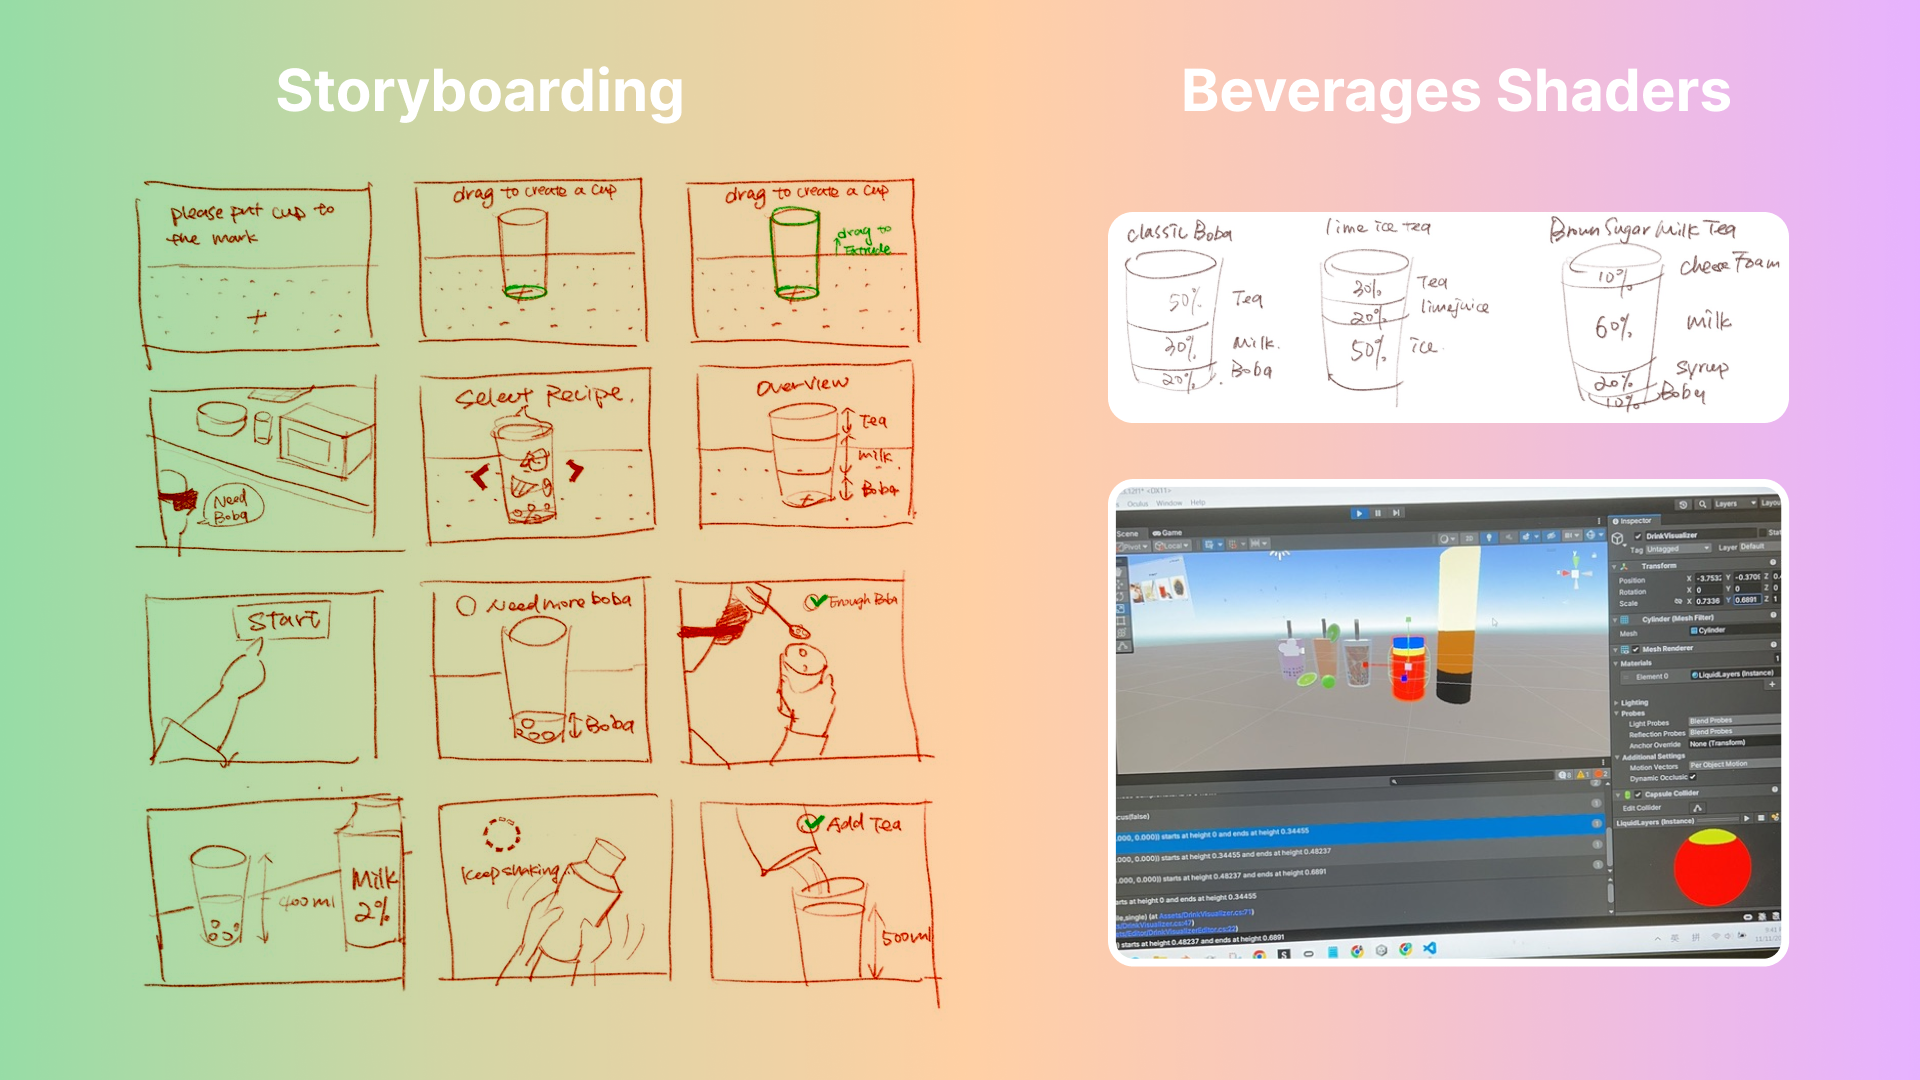 Storyboarding
please put cup to
the mark
drag to create a cup
drag to create a cup
drag to
Extrude
Need
Boba
Select Recipe.
Overview
Tea
milk
Boba
Start
Need more boba
Boba
Enough Boba
400ml
Milk
2%
Keep shaking
Add Tea
500ml
Beverages Shaders
classic Boba
50% Tea
30% Milk.
20% Boba
lime ice tea
30% Tea
20% limejuice
50% ice
Brown Sugar Milk Tea
10% cheese Foam
60% milk
20% syrup
10% Boba
Oculus Window Help
Layers
Scene Game
Pivot Local
2D
Inspector
DrinkVisualizer
Tag Untagged Layer Default
Transform
Position X -3.753 Y -0.370 Z
Rotation X 0 Y 0 Z 0
Scale X 0.7336 Y 0.6891 Z 1
Cylinder (Mesh Filter)
Mesh Cylinder
Mesh Renderer
Materials 1
Element 0 LiquidLayers (Instance)
Lighting
Probes
Light Probes Blend Probes
Reflection Probes Blend Probes
Anchor Override None (Transform)
Additional Settings
Motion Vectors Per Object Motion
Dynamic Occlusion
Capsule Collider
Edit Collider
LiquidLayers (Instance)
cus(false)
.000, 0.000)) starts at height 0 and ends at height 0.34455
.000, 0.000)) starts at height 0.34455 and ends at height 0.48237
.000, 0.000)) starts at height 0.48237 and ends at height 0.6891
arts at height 0 and ends at height 0.34455
(at Assets/DrinkVisualizer.cs:71)
s/DrinkVisualizer.cs:47)
ets/Editor/DrinkVisualizerEditor.cs:22)
starts at height 0.48237 and ends at height 0.6891
英 拼